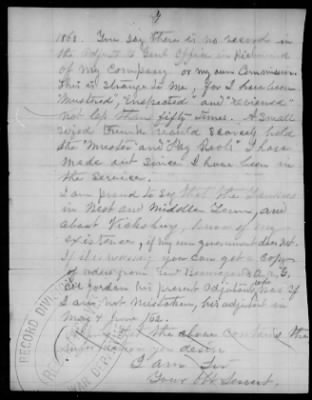 4
1863. You say there is no record in
the Adjt & Genl Office in Richmond
of my Company or my own Commission
This is strange to me, for I have been
"Mustered", "Inspected" and "Reviewed"
not less than fifty times. A small
sized trunk would scarcely hold
the "Muster" and "Pay Rolls" I have
made out since I have been in
the service.
I am proud to say that the Yankees
in West and Middle Tenn, and
about Vicksburg, know of my
existence, if my own government does not.
If necessary you can get a copy
of orders from Genl Beauregard's A.A.G.
Col Jordan his present Adjutant who was if
I am not mistaken, his adjutant in
May & June /62.
the above contains the
information you desire
I am Sir
Your Obt Servt.
RECORD DIVISION
WAR DEPARTMENT